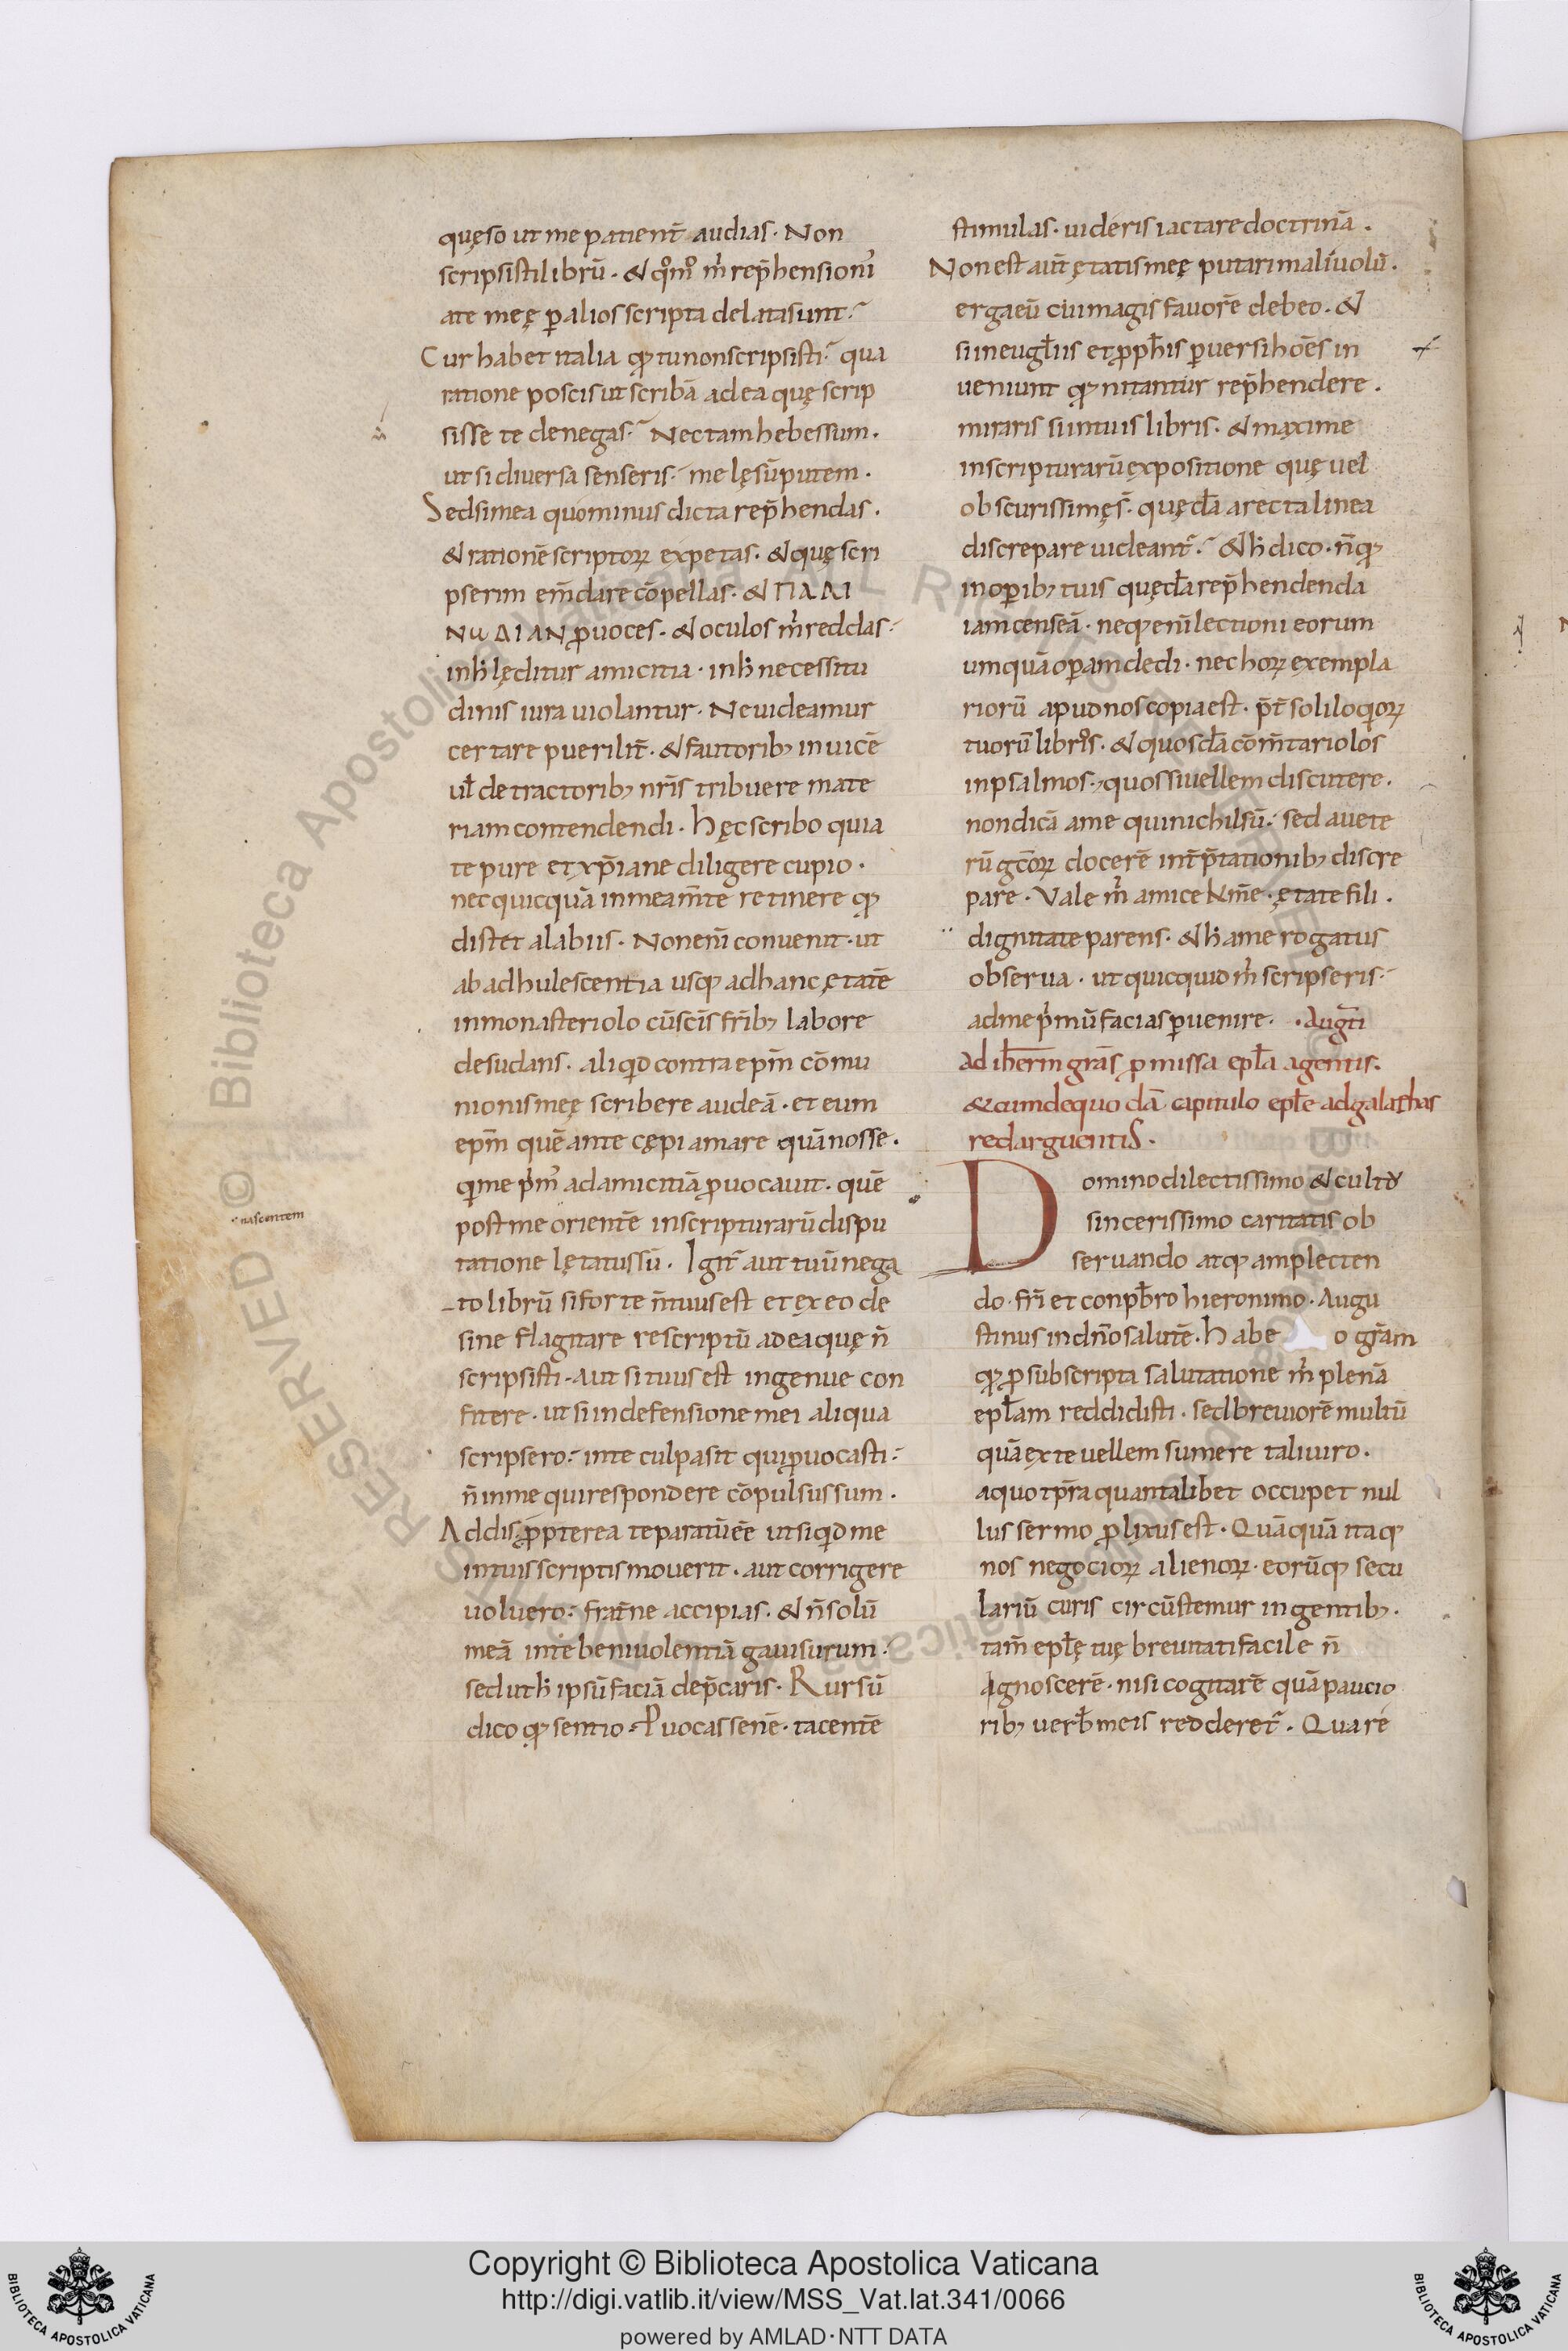 quęso ut me patient̄ audias. Non
scripsisti librū. & qᵒmᵒ m̄ rep̄hensionū
a te meę ꝑ alios scripta delata sunt?
Cur habet italia qđ tu non scripsisti? qua
ratione poscis ut scribā ad ea quę scrip
sisse te denegas? Nec tam hebes sum.
ut si diversa senseris me lęsū putem.
Sed si mea quominus dicta rep̄hendas.
& rationē scriptoꝝ expetas. & quę scri
pserim em̄dare cōpellas. & ΠΑΛΙ
ΝωΔΙΑΝ ꝓvoces. & oculos m̄ reddas
in ħ lęditur amicitia. in ħ necessitu
dinis iura violantur. Ne videamur
certare puerilit̄. & fautorib; in uicē
uł detractorib; nr̄is tribuere mate
riam contendendi. hęc scribo quia
te pure et xp̄iane diligere cupio.
nec quicquā in mea m̄te retinere qđ
distet a labiis. Non eni̅ convenit. ut
ab adhulescentia usq; ad hanc ętatē
in monasteriolo cū scīs fr̄ib; labore
desudans. aliqd contra ep̄m cōmu
nionis meę scribere audeā. et eum
ep̄m quē ante cępi amare quā nosse.
qi me pⁱm̄ ad amicitiā ꝓvocavit. quē
post me orientē in scripturarū dispu
tatione lętatus sū. Igit̄ aut tuū nega
to librū si forte n̄ tuus est et ex eo de
sine flagitare rescriptū ad ea quę n̄
scripsisti. aut si tuus est ingenue con
fitere. ut si in defensione mei aliqua
scripsero. in te culpa sit qui ꝓvocasti.
n̄ in me qui respondere cōpulsus sum.
Addis ꝓpterea te paratū ēē ut si qd me
in tuis scriptis moverit. aut corrigere
voluero. frat̄ne accipias. & n̄ solū
meā in te benivolentiā gavisurum.
sed ut ħ ipsū faciā dep̄caris. Rursū
dico qđ sentio. Ꝓvocas senē. tacentē
nascentem
stimulas. videris iactare doctrinā.
Non est aut̄ ętatis meę putari malivolū.
erga eū cui magis favorē debeo. &
si in eugl̄iis et ꝓph̄is ꝑversi hoēs in
veniunt qđ nitantur rep̄hendere.
miraris si in tuis libris. & maxime
in scripturarū expositione quę vel
obscurissimę s̄. quędā a recta linea
discrepare videant̄? & ħ dico. n̄ qđ
in oꝑib; tuis quędā rep̄hendenda
iam censeā. neq; eni̅ lectioni eorum
umquā oꝑam dedi. nec hoꝝ exempla
riorū apud nos copia est. p̄t̄ soliloqioꝝ
tuorū libros. & quosdā cōm̄tariolos
in psalmos. quos si vellem discutere.
non dicā a me qui nichil sū. sed a vete
rū gc̄oꝝ docerē int̄p̄tationib; discre
pare. Vale m̄ amice km̄e. ętate fili.
dignitate parens. & ħ a me rogatus
observa. ut quicquid m̄ scripseris
ad me pⁱmū facias ꝑvenire. . Augti̅
Ad iherm̄ grās ꝓ missa epl̄a agentis.
& eum de quodā capitulo epl̄e ad galathas
redarguentis.
Domino dilectissimo & cultu
sincerissimo caritatis ob
servando atq; amplecten
do. fr̄i et conpb̄ro hieronimo. Augu
stinus in dn̄o salutē. habe o gr̄am
qđ ꝓ subscripta salutatione m̄ plenā
epl̄am reddidisti. sed breviorē multū
quā ex te vellem sumere tali viro.
a quo tp̄ra quantalibet occupet nul
lus sermo ꝓlixus est. Quāquā itaq;
nos negocioꝝ alienoꝝ. eorūq; secu
lariū curis circūstemur ingentib;.
tam̄ epl̄ę tuę brevitati facile n̄
agnoscerē. nisi cogitarē quā paucio
rib; verb̄ meis redderet̄. Quare
Copyright © Biblioteca Apostolica Vaticana
http://digi.vatlib.it/view/MSS_Vat.lat.341/0066
powered by AMLAD·NTT DATA